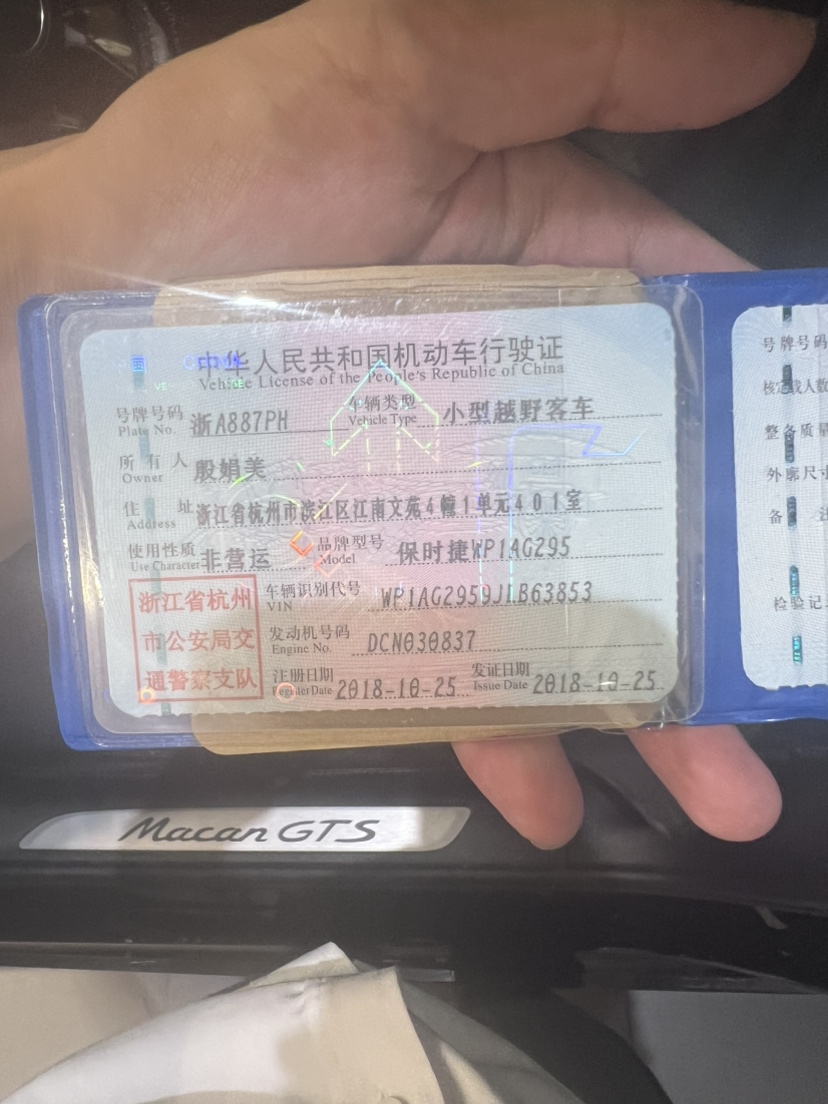 中华人民共和国机动车行驶证
Vehicle License of the People's Republic of China
号牌号码 浙A887PH 车辆类型 小型越野客车
Plate No. Vehicle Type
所有人 殷娟美
Owner
住址 浙江省杭州市滨江区江南文苑4幢1单元401室
Address
使用性质 非营运 品牌型号 保时捷WP1AG295
Use Character Model
浙江省杭州
市公安局交
通警察支队
车辆识别代号 WP1AG2959JLB63853
VIN
发动机号码 DCN030837
Engine No.
注册日期 2018-10-25 发证日期 2018-10-25
Register Date Issue Date
号牌号码
核定载人数
整备质量
外廓尺寸
备注
检验记
Macan GTS